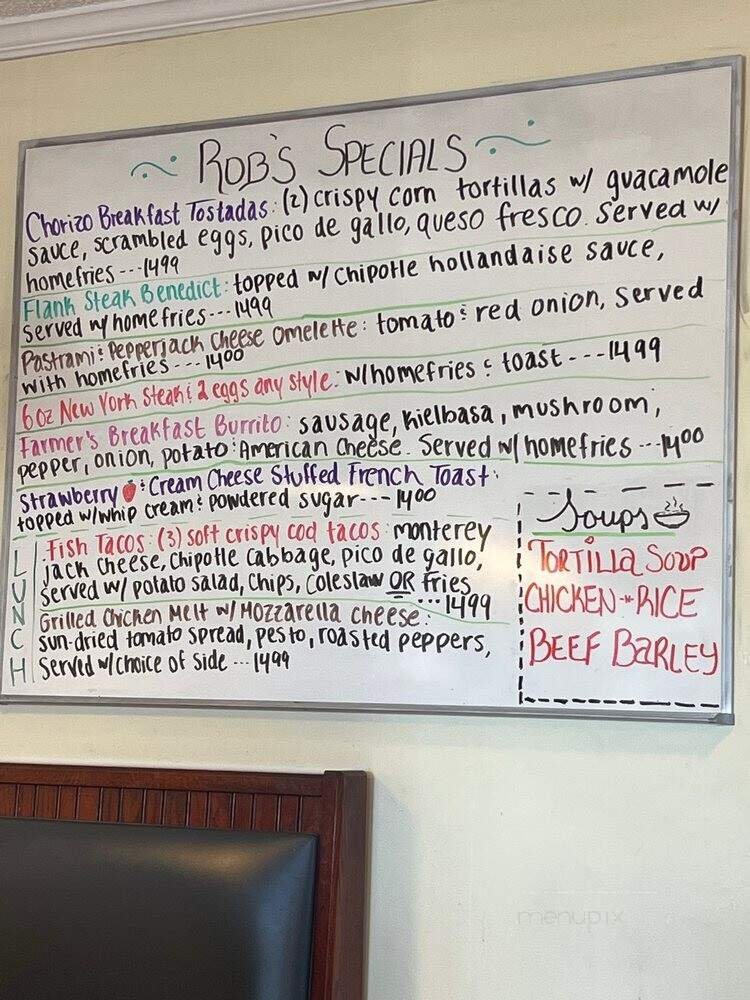 ROB'S SPECIALS
Chorizo Breakfast Tostadas: (2) crispy corn tortillas w/ guacamole
sauce, scrambled eggs, pico de gallo, queso fresco. Served w/
homefries --- 1499
Flank Steak Benedict: topped w/ Chipotle hollandaise sauce,
served w/ homefries --- 1499
Pastrami & Pepperjack Cheese Omelette: tomato & red onion, served
with homefries --- 1400
6 oz New York Steak & 2 eggs any style: w/homefries & toast --- 1499
Farmer's Breakfast Burrito: sausage, kielbasa, mushroom,
pepper, onion, potato & American Cheese. Served w/ homefries --- 1400
Strawberry & Cream Cheese Stuffed French Toast:
topped w/whip cream & powdered sugar --- 1400
LUNCH
Fish Tacos: (3) soft crispy cod tacos: monterey
jack cheese, Chipotle Cabbage, pico de gallo,
Served w/ potato salad, Chips, Coleslaw OR fries
... 1499
Grilled Chicken Melt w/ Mozzarella cheese:
sun-dried tomato spread, pesto, roasted peppers,
Served w/choice of side --- 1499
Soups
TORTILLA SOUP
CHICKEN-RICE
BEEF BARLEY
menupix